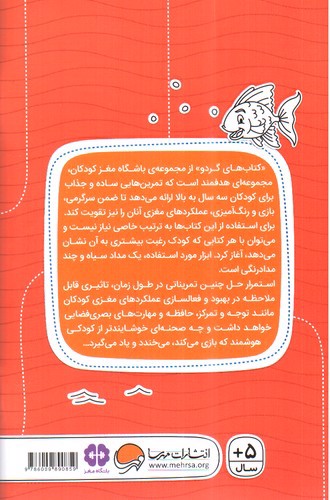 «کتاب‌های گردو» از مجموعه‌ی باشگاه مغز کودکان،
مجموعه‌ای هدفمند است که تمرین‌هایی ساده و جذاب
برای کودکان سه سال به بالا ارائه می‌دهد تا ضمن سرگرمی،
بازی و رنگ‌آمیزی، عملکردهای مغزی آنان را نیز تقویت کند.
برای استفاده از این کتاب‌ها به ترتیب خاصی نیاز نیست و
می‌توان با هر کتابی که کودک رغبت بیشتری به آن نشان
می‌دهد، آغاز کرد. ابزار مورد استفاده، یک مداد سیاه و چند
مدادرنگی است.
استمرار حل چنین تمریناتی در طول زمان، تاثیری قابل
ملاحظه در بهبود و فعالسازی عملکردهای مغزی کودکان
مانند توجه و تمرکز، حافظه و مهارت‌های بصری‌فضایی
خواهد داشت و چه صحنه‌ای خوشایندتر از کودکی
هوشمند که بازی می‌کند، می‌خندد و یاد می‌گیرد...
+۵
سال
انتشارات مهرسا
www.mehrsa.org
باشگاه مغز
9786008890859